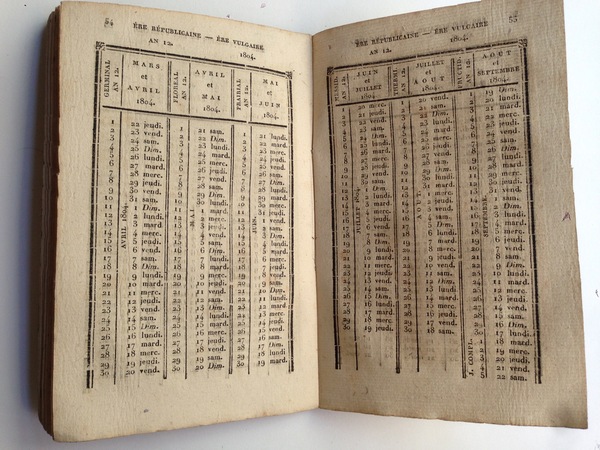 54 ÈRE RÉPUBLICAINE — ÈRE VULGAIRE
AN 12. 1804.
GERMINAL AN 12.
MARS
et
AVRIL
1804.
FLORÉAL AN 12.
AVRIL
et
MAI
1804.
PRAIRIAL AN 12.
MAI
et
JUIN
1804.
1 22 jeudi. 1 21 sam. 1 21 lundi.
2 23 vend. 2 22 Dim. 2 22 mard.
3 24 sam. 3 23 lundi. 3 23 merc.
4 25 Dim. 4 24 mard. 4 24 jeudi.
5 26 lundi. 5 25 merc. 5 25 vend.
6 27 mard. 6 26 jeudi. 6 26 sam.
7 28 merc. 7 27 vend. 7 27 Dim.
8 29 jeudi. 8 28 sam. 8 28 lundi.
9 30 vend. 9 29 Dim. 9 29 mard.
10 31 sam. 10 30 lundi. 10 30 merc.
11 1 Dim. 11 1 mard. 11 31 jeudi.
12 2 lundi. 12 2 merc. 12 1 vend.
13 3 mard. 13 3 jeudi. 13 2 sam.
14 4 merc. 14 4 vend. 14 3 Dim.
15 5 jeudi. 15 5 sam. 15 4 lundi.
16 6 vend. 16 6 Dim. 16 5 mard.
17 7 sam. 17 7 lundi. 17 6 merc.
18 8 Dim. 18 8 mard. 18 7 jeudi.
19 9 lundi. 19 9 merc. 19 8 vend.
20 10 mard. 20 10 jeudi. 20 9 sam.
21 11 merc. 21 11 vend. 21 10 Dim.
22 12 jeudi. 22 12 sam. 22 11 lundi.
23 13 vend. 23 13 Dim. 23 12 mard.
24 14 sam. 24 14 lundi. 24 13 merc.
25 15 Dim. 25 15 mard. 25 14 jeudi.
26 16 lundi. 26 16 merc. 26 15 vend.
27 17 mard. 27 17 jeudi. 27 16 sam.
28 18 merc. 28 18 vend. 28 17 Dim.
29 19 jeudi. 29 19 sam. 29 18 lundi.
30 20 vend. 30 20 Dim. 30 19 mard.
AVRIL 1804.
MAI
JUIN
ÈRE RÉPUBLICAINE — ÈRE VULGAIRE. 55
AN 12. 1804.
MESSID. AN 12.
JUIN
et
JUILLET
1804.
THERMI. AN 12.
JUILLET
et
AOUT
1804.
FRUCTID. AN 12.
AOUT
et
SEPTEMBRE
1804.
1 20 merc. 1 20 vend. 1 19 Dim.
2 21 jeudi. 2 21 sam. 2 20 lundi.
3 22 vend. 3 22 Dim. 3 21 mard.
4 23 sam. 4 23 lundi. 4 22 merc.
5 24 Dim. 5 24 mard. 5 23 jeudi.
6 25 lundi. 6 25 merc. 6 24 vend.
7 26 mard. 7 26 jeudi. 7 25 sam.
8 27 merc. 8 27 vend. 8 26 Dim.
9 28 jeudi. 9 28 sam. 9 27 lundi.
10 29 vend. 10 29 Dim. 10 28 mard.
11 30 sam. 11 30 lundi. 11 29 merc.
12 1 Dim. 12 31 mard. 12 30 jeudi.
13 2 lundi. 13 1 merc. 13 31 vend.
14 3 mard. 14 2 jeudi. 14 1 sam.
15 4 merc. 15 3 vend. 15 2 Dim.
16 5 jeudi. 16 4 sam. 16 3 lundi.
17 6 vend. 17 5 Dim. 17 4 mard.
18 7 sam. 18 6 lundi. 18 5 merc.
19 8 Dim. 19 7 mard. 19 6 jeudi.
20 9 lundi. 20 8 merc. 20 7 vend.
21 10 mard. 21 9 jeudi. 21 8 sam.
22 11 merc. 22 10 vend. 22 9 Dim.
23 12 jeudi. 23 11 sam. 23 10 lundi.
24 13 vend. 24 12 Dim. 24 11 mard.
25 14 sam. 25 13 lundi. 25 12 merc.
26 15 Dim. 26 14 mard. 26 13 jeudi.
27 16 lundi. 27 15 merc. 27 14 vend.
28 17 mard. 28 16 jeudi. 28 15 sam.
29 18 merc. 29 17 vend. 29 16 Dim.
30 19 jeudi. 30 18 sam. 30 17 lundi.
1 18 mard.
2 19 merc.
3 20 jeudi.
4 21 vend.
5 22 sam.
JUILLET 1804.
SEPTEMBRE.
J. COMPL.